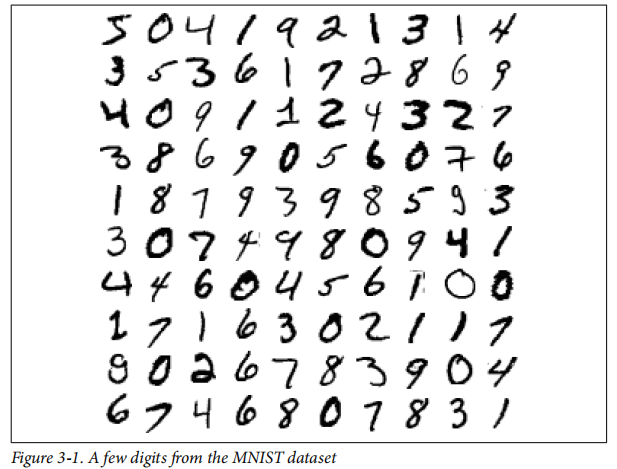 5 0 4 1 9 2 1 3 1 4
3 5 3 6 1 7 2 8 6 9
4 0 9 1 1 2 4 3 2 7
3 8 6 9 0 5 6 0 7 6
1 8 7 9 3 9 8 5 9 3
3 0 7 4 9 8 0 9 4 1
4 4 6 0 4 5 6 1 0 0
1 7 1 6 3 0 2 1 1 7
9 0 2 6 7 8 3 9 0 4
6 7 4 6 8 0 7 8 3 1
Figure 3-1. A few digits from the MNIST dataset